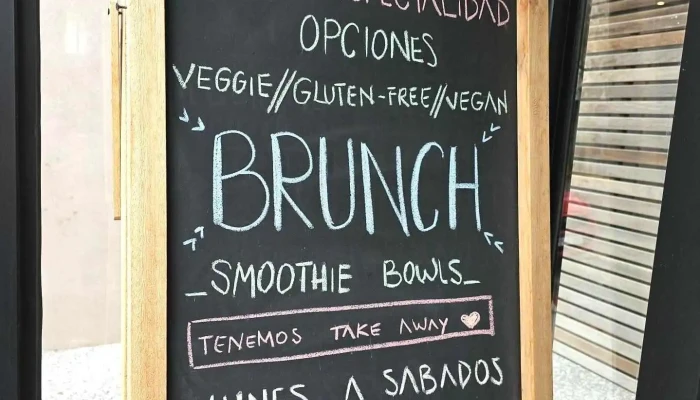 ESPECIALIDAD
OPCIONES
VEGGIE//GLUTEN-FREE//VEGAN
BRUNCH
_SMOOTHIE BOWLS_
TENEMOS TAKE AWAY
LUNES A SABADOS